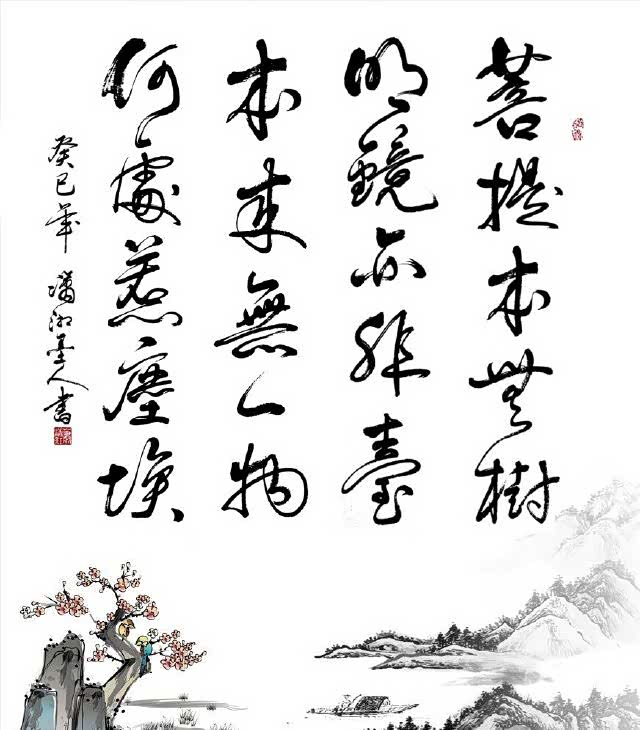 菩提本無樹
明鏡亦非臺
本來無一物
何處惹塵埃
癸巳年 瀟湘墨人書